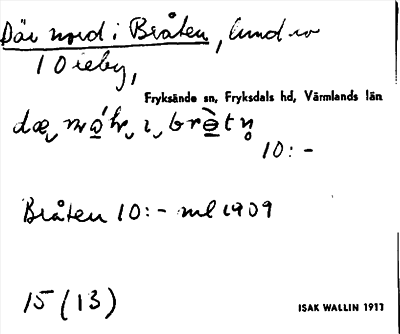 Där nord i Bråten,
1 Oreby,
Fryksände sn, Fryksdals hd, Värmlands län
10:-
Bråten 10:- ml 1909
15 (13)
ISAK WALLIN 1911